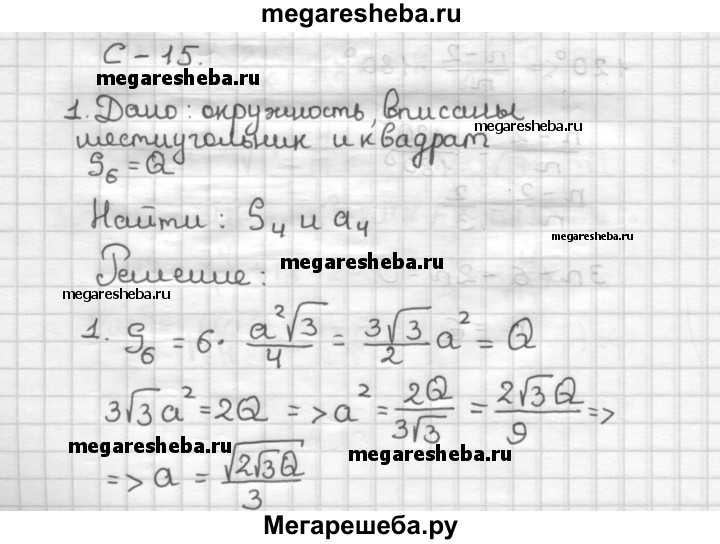 megaresheba.ru
С-15.
megaresheba.ru
1. Дано: окружность, вписаны
megaresheba.ru
шестиугольник и квадрат
S₆ = Q
Найти: S₄ и a₄
megaresheba.ru
Решение:
megaresheba.ru
megaresheba.ru
1. S₆ = 6 · a²√3/4 = 3√3/2 a² = Q
3√3 a² = 2Q => a² = 2Q/3√3 = 2√3Q/9 =>
megaresheba.ru
megaresheba.ru
=> a = √(2√3Q)/3
megaresheba.ru
Мегарешеба.ру